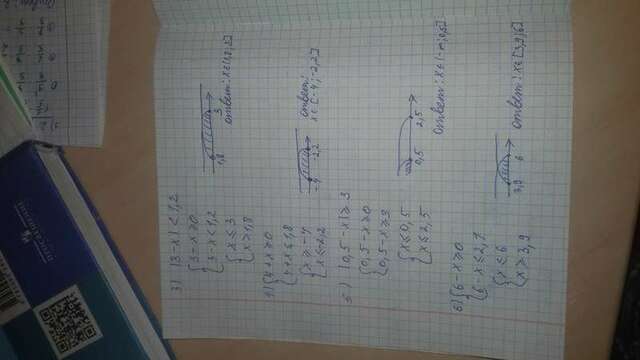 3) |3-x| < 1,2
{3-x≥0
{3-x<1,2
{x≤3
{x>1,8
1,8 3
Ответ: x∈(1,8;3]
4) {4+x≥0
{4+x≤1,8
{x≥-4
{x≤-2,2
-4 -2,2
Ответ:
x∈[-4;-2,2]
5) |0,5-x|≥3
{0,5-x≥0
{0,5-x≥3
{x≤0,5
{x≤2,5
0,5 2,5
Ответ: x∈(-∞;0,5]
6) {6-x≥0
{6-x≤2,1
{x≤6
{x≥3,9
3,9 6
Ответ: x∈[3,9;6]